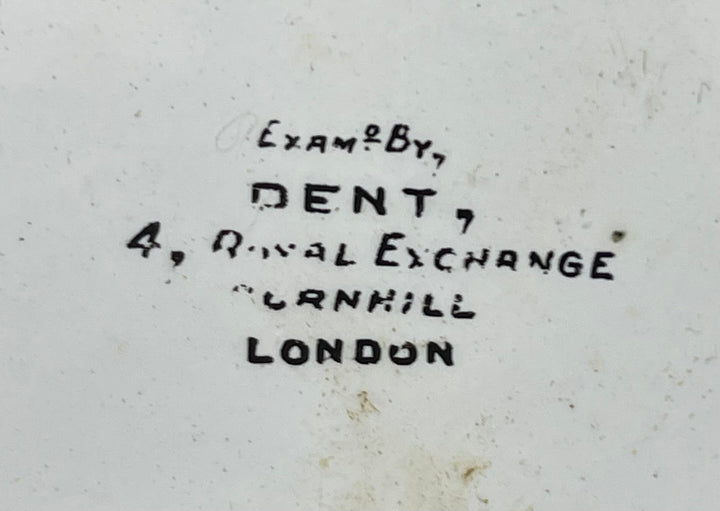 EXAMD BY,
DENT,
4, ROYAL EXCHANGE
CORNHILL
LONDON